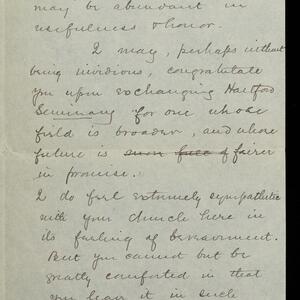 may be abundant in
usefulness & honor.
I may, perhaps without
being invidious, congratulate
you upon exchanging Hartford
Seminary for one whose
field is broader, and whose
future is even full of fairer
in promise.
I do feel extremely sympathetic
with your church here in
its feeling of bereavement.
But you cannot but be
greatly comforted in that
you leave it in such